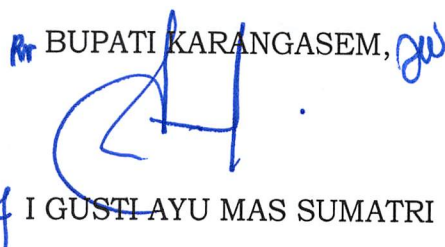 BUPATI KARANGASEM,
I GUSTI AYU MAS SUMATRI